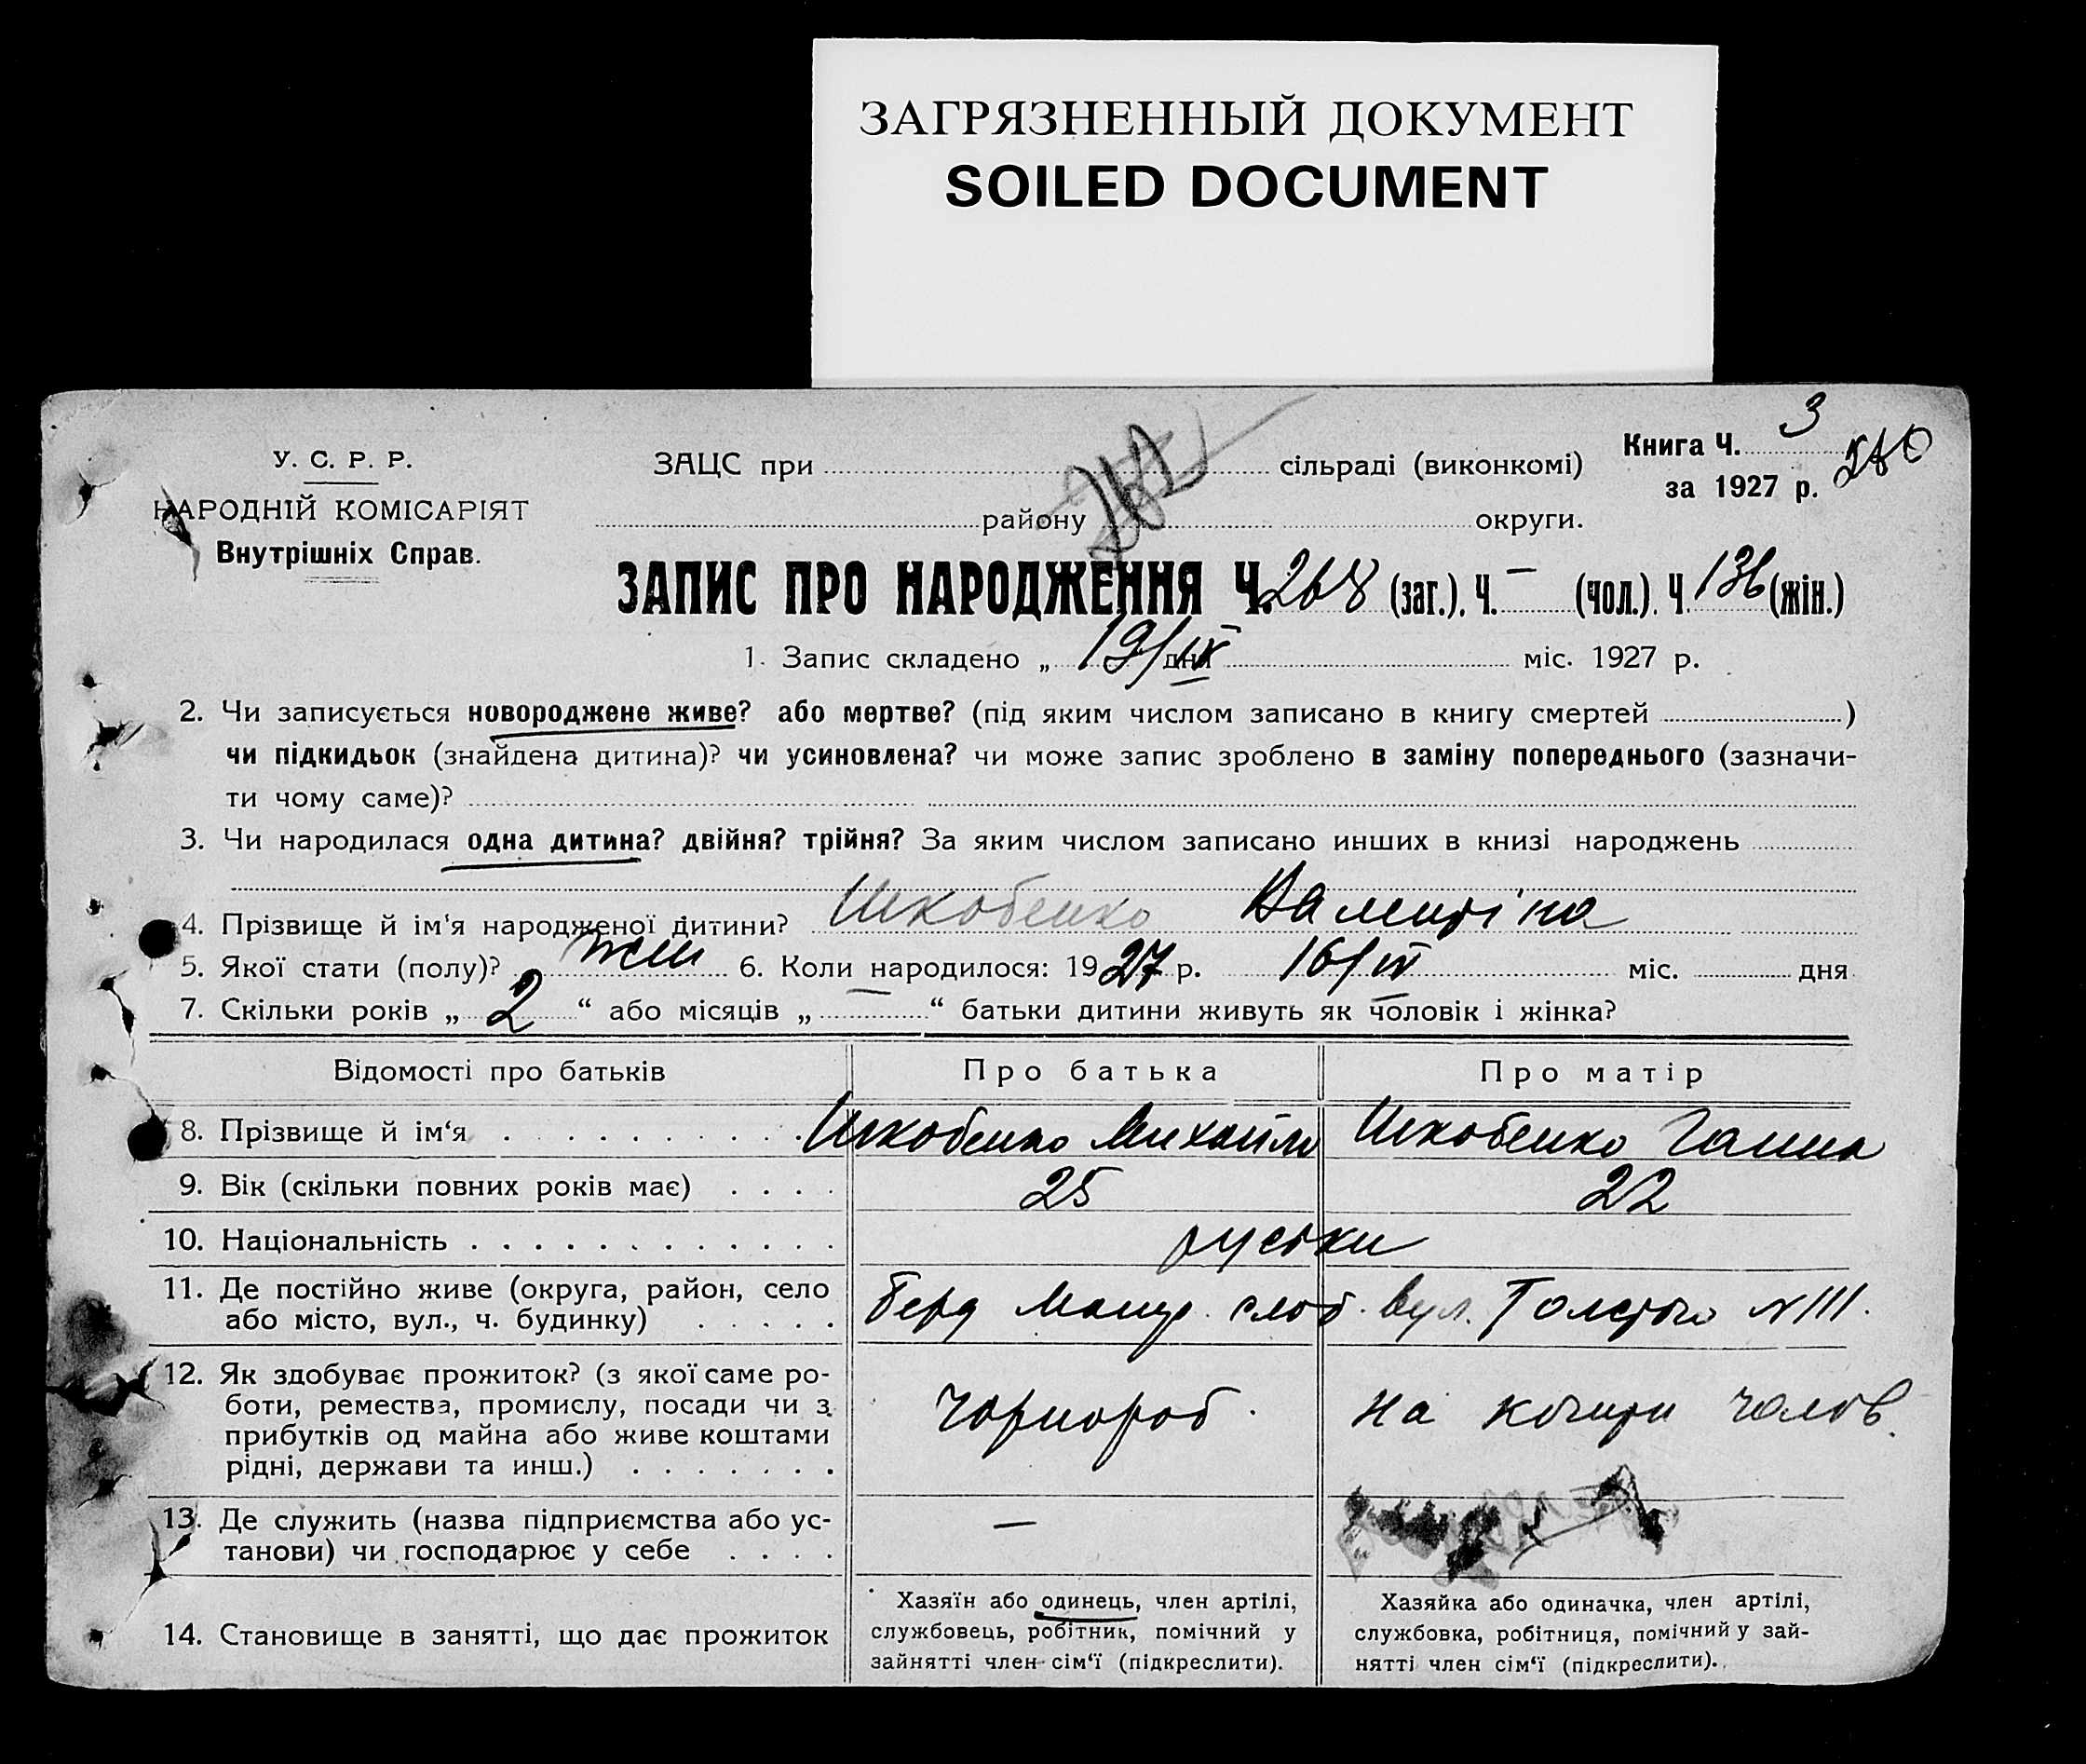 ЗАГРЯЗНЕННЫЙ ДОКУМЕНТ
SOILED DOCUMENT
У. С. Р. Р.
НАРОДНІЙ КОМІСАРІЯТ
Внутрішніх Справ.
ЗАЦС при сільраді (виконкомі)
району округи.
Книга Ч. 3
за 1927 р.
ЗАПИС ПРО НАРОДЖЕННЯ Ч. 268 (заг.). Ч. — (чол.). Ч. 136 (жін.)
1. Запис складено „ 19/IX дня міс. 1927 р.
2. Чи записується новороджене живе? або мертве? (під яким числом записано в книгу смертей )
чи підкидьок (знайдена дитина)? чи усиновлена? чи може запис зроблено в заміну попереднього (зазначи-
ти чому саме)?
3. Чи народилася одна дитина? двійня? трійня? За яким числом записано инших в книзі народжень
4. Прізвище й ім'я народженої дитини? Шкобенко Валентіна
5. Якої стати (полу)? жін 6. Коли народилося: 1927 р. 16/IV міс. дня
7. Скільки років „ 2 “ або місяців „ — “ батьки дитини живуть як чоловік і жінка?
Відомості про батьків Про батька Про матір
8. Прізвище й ім‘я Шкобенко Михайло Шкобенко Ганна
9. Вік (скільки повних років має) 25 22
10. Національність руськи
11. Де постійно живе (округа, район, село
або місто, вул., ч. будинку)
слоб. вул. Толстого № 111.
12. Як здобуває прожиток? (з якої саме ро-
боти, ремества, промислу, посади чи з
прибутків од майна або живе коштами
рідні, держави та инш.)
Чорнороб. на кошти чолов.
13. Де служить (назва підприємства або ус-
танови) чи господарює у себе
—
14. Становище в занятті, що дає прожиток
Хазяїн або одинець, член артілі,
службовець, робітник, помічний у
зайнятті член сім‘ї (підкреслити).
Хазяйка або одиначка, член артілі,
службовка, робітниця, помічний у зай-
нятті член сім‘ї (підкреслити).